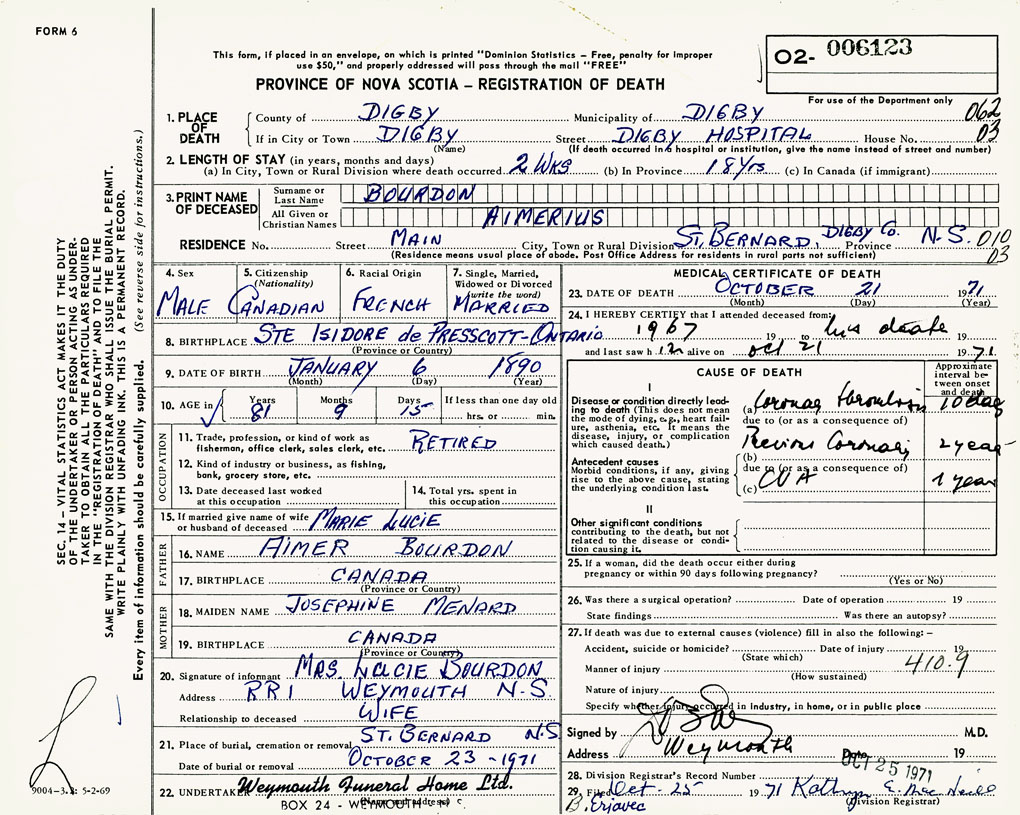 FORM 6
This form, if placed in an envelope, on which is printed "Dominion Statistics – Free, penalty for improper
use $50," and properly addressed will pass through the mail "FREE"
PROVINCE OF NOVA SCOTIA – REGISTRATION OF DEATH
O2- 006123
For use of the Department only
1. PLACE OF DEATH
County of DIGBY Municipality of DIGBY 062
If in City or Town DIGBY Street DIGBY HOSPITAL House No. 03
(Name) (If death occurred in a hospital or institution, give the name instead of street and number)
2. LENGTH OF STAY (in years, months and days)
(a) In City, Town or Rural Division where death occurred 2 WKS (b) In Province 18 Yrs (c) In Canada (if immigrant)
3. PRINT NAME OF DECEASED
Surname or Last Name BOURDON
All Given or Christian Names AIMERIUS
RESIDENCE No. Street MAIN City, Town or Rural Division ST. BERNARD, DIGBY CO. Province N.S. 010
(Residence means usual place of abode. Post Office Address for residents in rural parts not sufficient) 03
4. Sex 5. Citizenship (Nationality) 6. Racial Origin 7. Single, Married, Widowed or Divorced (write the word)
MALE CANADIAN FRENCH MARRIED
8. BIRTHPLACE STE ISIDORE de PRESSCOTT-ONTARIO
(Province or Country)
9. DATE OF BIRTH JANUARY 6 1890
(Month) (Day) (Year)
10. AGE in Years Months Days If less than one day old
81 9 15 hrs. or min.
OCCUPATION
11. Trade, profession, or kind of work as
fisherman, office clerk, sales clerk, etc. RETIRED
12. Kind of industry or business, as fishing,
bank, grocery store, etc.
13. Date deceased last worked
at this occupation
14. Total yrs. spent in
this occupation
15. If married give name of wife
or husband of deceased MARIE LUCIE
FATHER
16. NAME AIMER BOURDON
17. BIRTHPLACE CANADA
(Province or Country)
MOTHER
18. MAIDEN NAME JOSEPHINE MENARD
19. BIRTHPLACE CANADA
(Province or Country)
20. Signature of informant MRS. LUCIE BOURDON
Address RR1 WEYMOUTH N.S.
Relationship to deceased WIFE
21. Place of burial, cremation or removal ST. BERNARD N.S.
Date of burial or removal OCTOBER 23 - 1971
22. UNDERTAKER Weymouth Funeral Home Ltd.
BOX 24 - WEYMOUTH
(Name and address)
MEDICAL CERTIFICATE OF DEATH
23. DATE OF DEATH OCTOBER 21 1971
(Month) (Day) (Year)
24. I HEREBY CERTIFY that I attended deceased from:
1967 19 to his death 19
and last saw him alive on Oct 21 1971
CAUSE OF DEATH
Approximate interval between onset and death
I
Disease or condition directly leading to death (This does not mean the mode of dying, e.g., heart failure, asthenia, etc. It means the disease, injury, or complication which caused death.)
(a) Coronary thrombosis 10 days
due to (or as a consequence of)
Antecedent causes
Morbid conditions, if any, giving rise to the above cause, stating the underlying condition last.
(b) Previous Coronary 2 years
due to (or as a consequence of)
(c) CVA 1 year
II
Other significant conditions contributing to the death, but not related to the disease or condition causing it.
25. If a woman, did the death occur either during
pregnancy or within 90 days following pregnancy?
(Yes or No)
26. Was there a surgical operation? Date of operation 19
State findings Was there an autopsy?
27. If death was due to external causes (violence) fill in also the following: –
Accident, suicide or homicide? Date of injury 19
(State which) 410.9
Manner of injury
(How sustained)
Nature of injury
Specify whether injury occurred in industry, in home, or in public place
Signed by M.D.
Address Weymouth Date 19
OCT 25 1971
28. Division Registrar's Record Number
29. Filed Oct. 25 1971 Kathryn E. MacNeill
B. Erjavec (Division Registrar)
SEC. 14 – VITAL STATISTICS ACT MAKES IT THE DUTY
OF THE UNDERTAKER OR PERSON ACTING AS UNDERTAKER
TO OBTAIN ALL THE PARTICULARS REQUIRED
IN THE "REGISTRATION OF DEATH" AND TO FILE THE
SAME WITH THE DIVISION REGISTRAR WHO SHALL ISSUE THE BURIAL PERMIT.
WRITE PLAINLY WITH UNFADING INK. THIS IS A PERMANENT RECORD.
Every item of information should be carefully supplied. (See reverse side for instructions.)